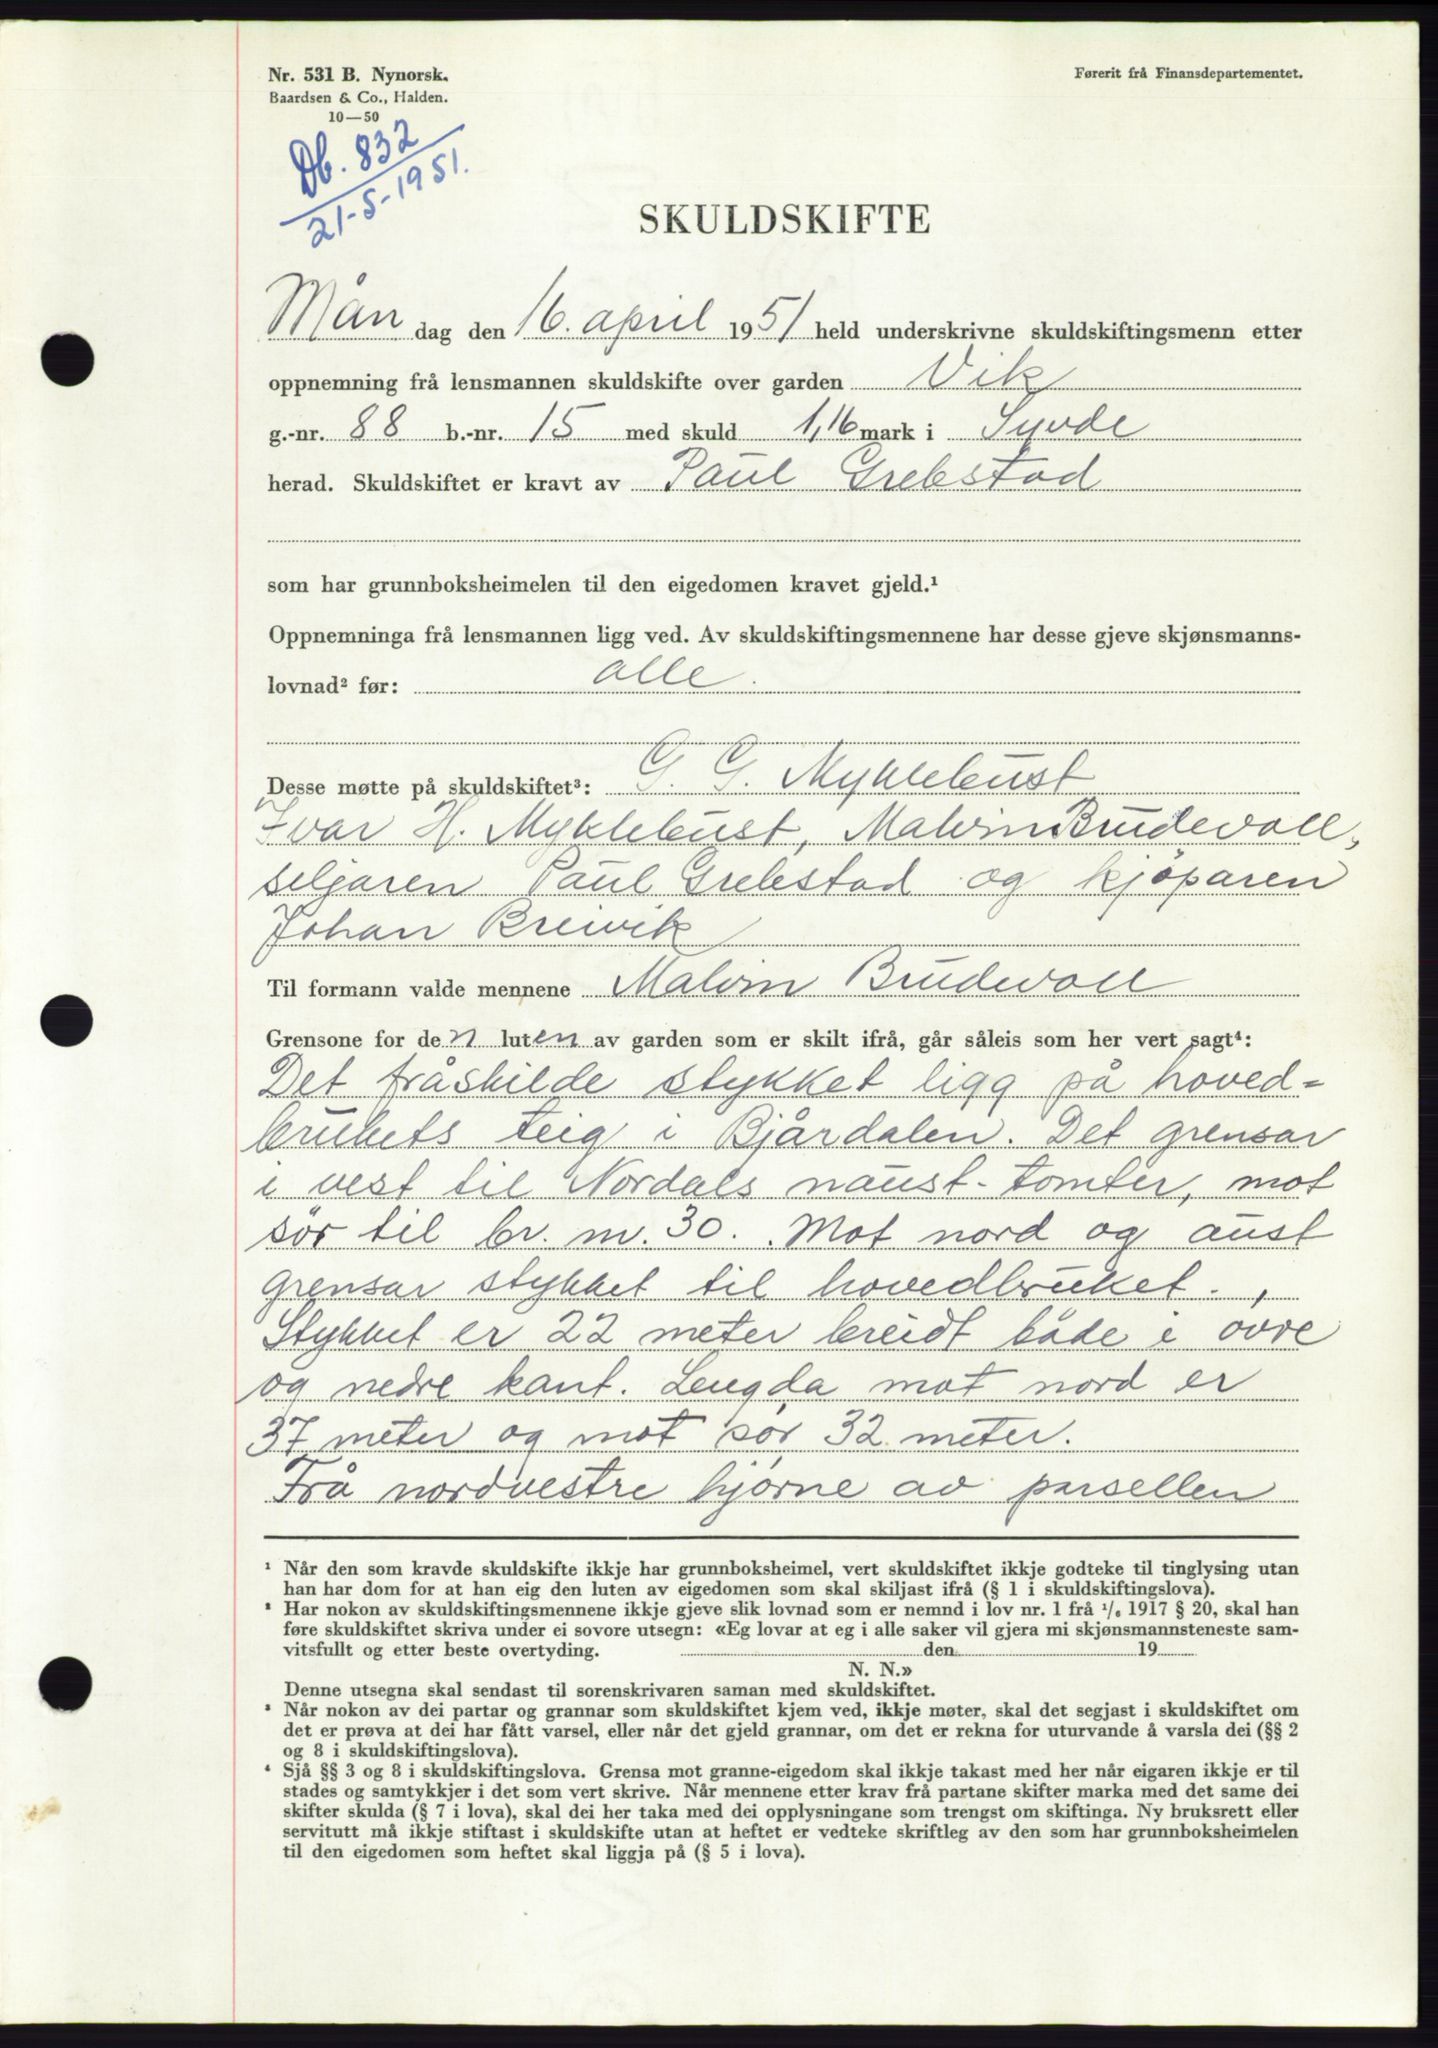 Nr. 531 B. Nynorsk.
Baardsen & Co., Halden.
10—50
Førerit frå Finansdepartementet.
Db. 832
21-5-1951.
SKULDSKIFTE
Mån dag den 16. april 1951 held underskrivne skuldskiftingsmenn etter
oppnemning frå lensmannen skuldskifte over garden Vik
g.-nr. 88 b.-nr. 15 med skuld 1,16 mark i Syvde
herad. Skuldskiftet er kravt av Paul Grebstad
som har grunnboksheimelen til den eigedomen kravet gjeld.¹
Oppnemninga frå lensmannen ligg ved. Av skuldskiftingsmennene har desse gjeve skjønsmanns-
lovnad² før: alle.
Desse møtte på skuldskiftet³: G. G. Myklebust
Ivar H. Myklebust, Malvin Brudevoll,
seljaren Paul Grebstad og kjøparen
Johan Breivik
Til formann valde mennene Malvin Brudevoll
Grensone for den luten av garden som er skilt ifrå, går såleis som her vert sagt⁴:
Det fråskilde stykket ligg på hoved=
brukets teig i Bjårdalen. Det grensar
i vest til Nordals naust-tomter, mot
sør til br. nr. 30. Mot nord og aust
grensar stykket til hovedbruket.,
Stykket er 22 meter breidt både i øvre
og nedre kant. Lengda mot nord er
37 meter og mot sør 32 meter.
Frå nordvestre hjørne av parsellen
¹ Når den som kravde skuldskifte ikkje har grunnboksheimel, vert skuldskiftet ikkje godteke til tinglysing utan
han har dom for at han eig den luten av eigedomen som skal skiljast ifrå (§ 1 i skuldskiftingslova).
² Har nokon av skuldskiftingsmennene ikkje gjeve slik lovnad som er nemnd i lov nr. 1 frå 1/6 1917 § 20, skal han
føre skuldskiftet skriva under ei sovore utsegn: «Eg lovar at eg i alle saker vil gjera mi skjønsmannsteneste sam-
vitsfullt og etter beste overtyding. den 19
N. N.»
Denne utsegna skal sendast til sorenskrivaren saman med skuldskiftet.
³ Når nokon av dei partar og grannar som skuldskiftet kjem ved, ikkje møter, skal det segjast i skuldskiftet om
det er prøva at dei har fått varsel, eller når det gjeld grannar, om det er rekna for uturvande å varsla dei (§§ 2
og 8 i skuldskiftingslova).
⁴ Sjå §§ 3 og 8 i skuldskiftingslova. Grensa mot granne-eigedom skal ikkje takast med her når eigaren ikkje er til
stades og samtykkjer i det som vert skrive. Når mennene etter krav frå partane skifter marka med det same dei
skifter skulda (§ 7 i lova), skal dei her taka med dei opplysningane som trengst om skiftinga. Ny bruksrett eller
servitutt må ikkje stiftast i skuldskifte utan at heftet er vedteke skriftleg av den som har grunnboksheimelen
til den eigedomen som heftet skal liggja på (§ 5 i lova).